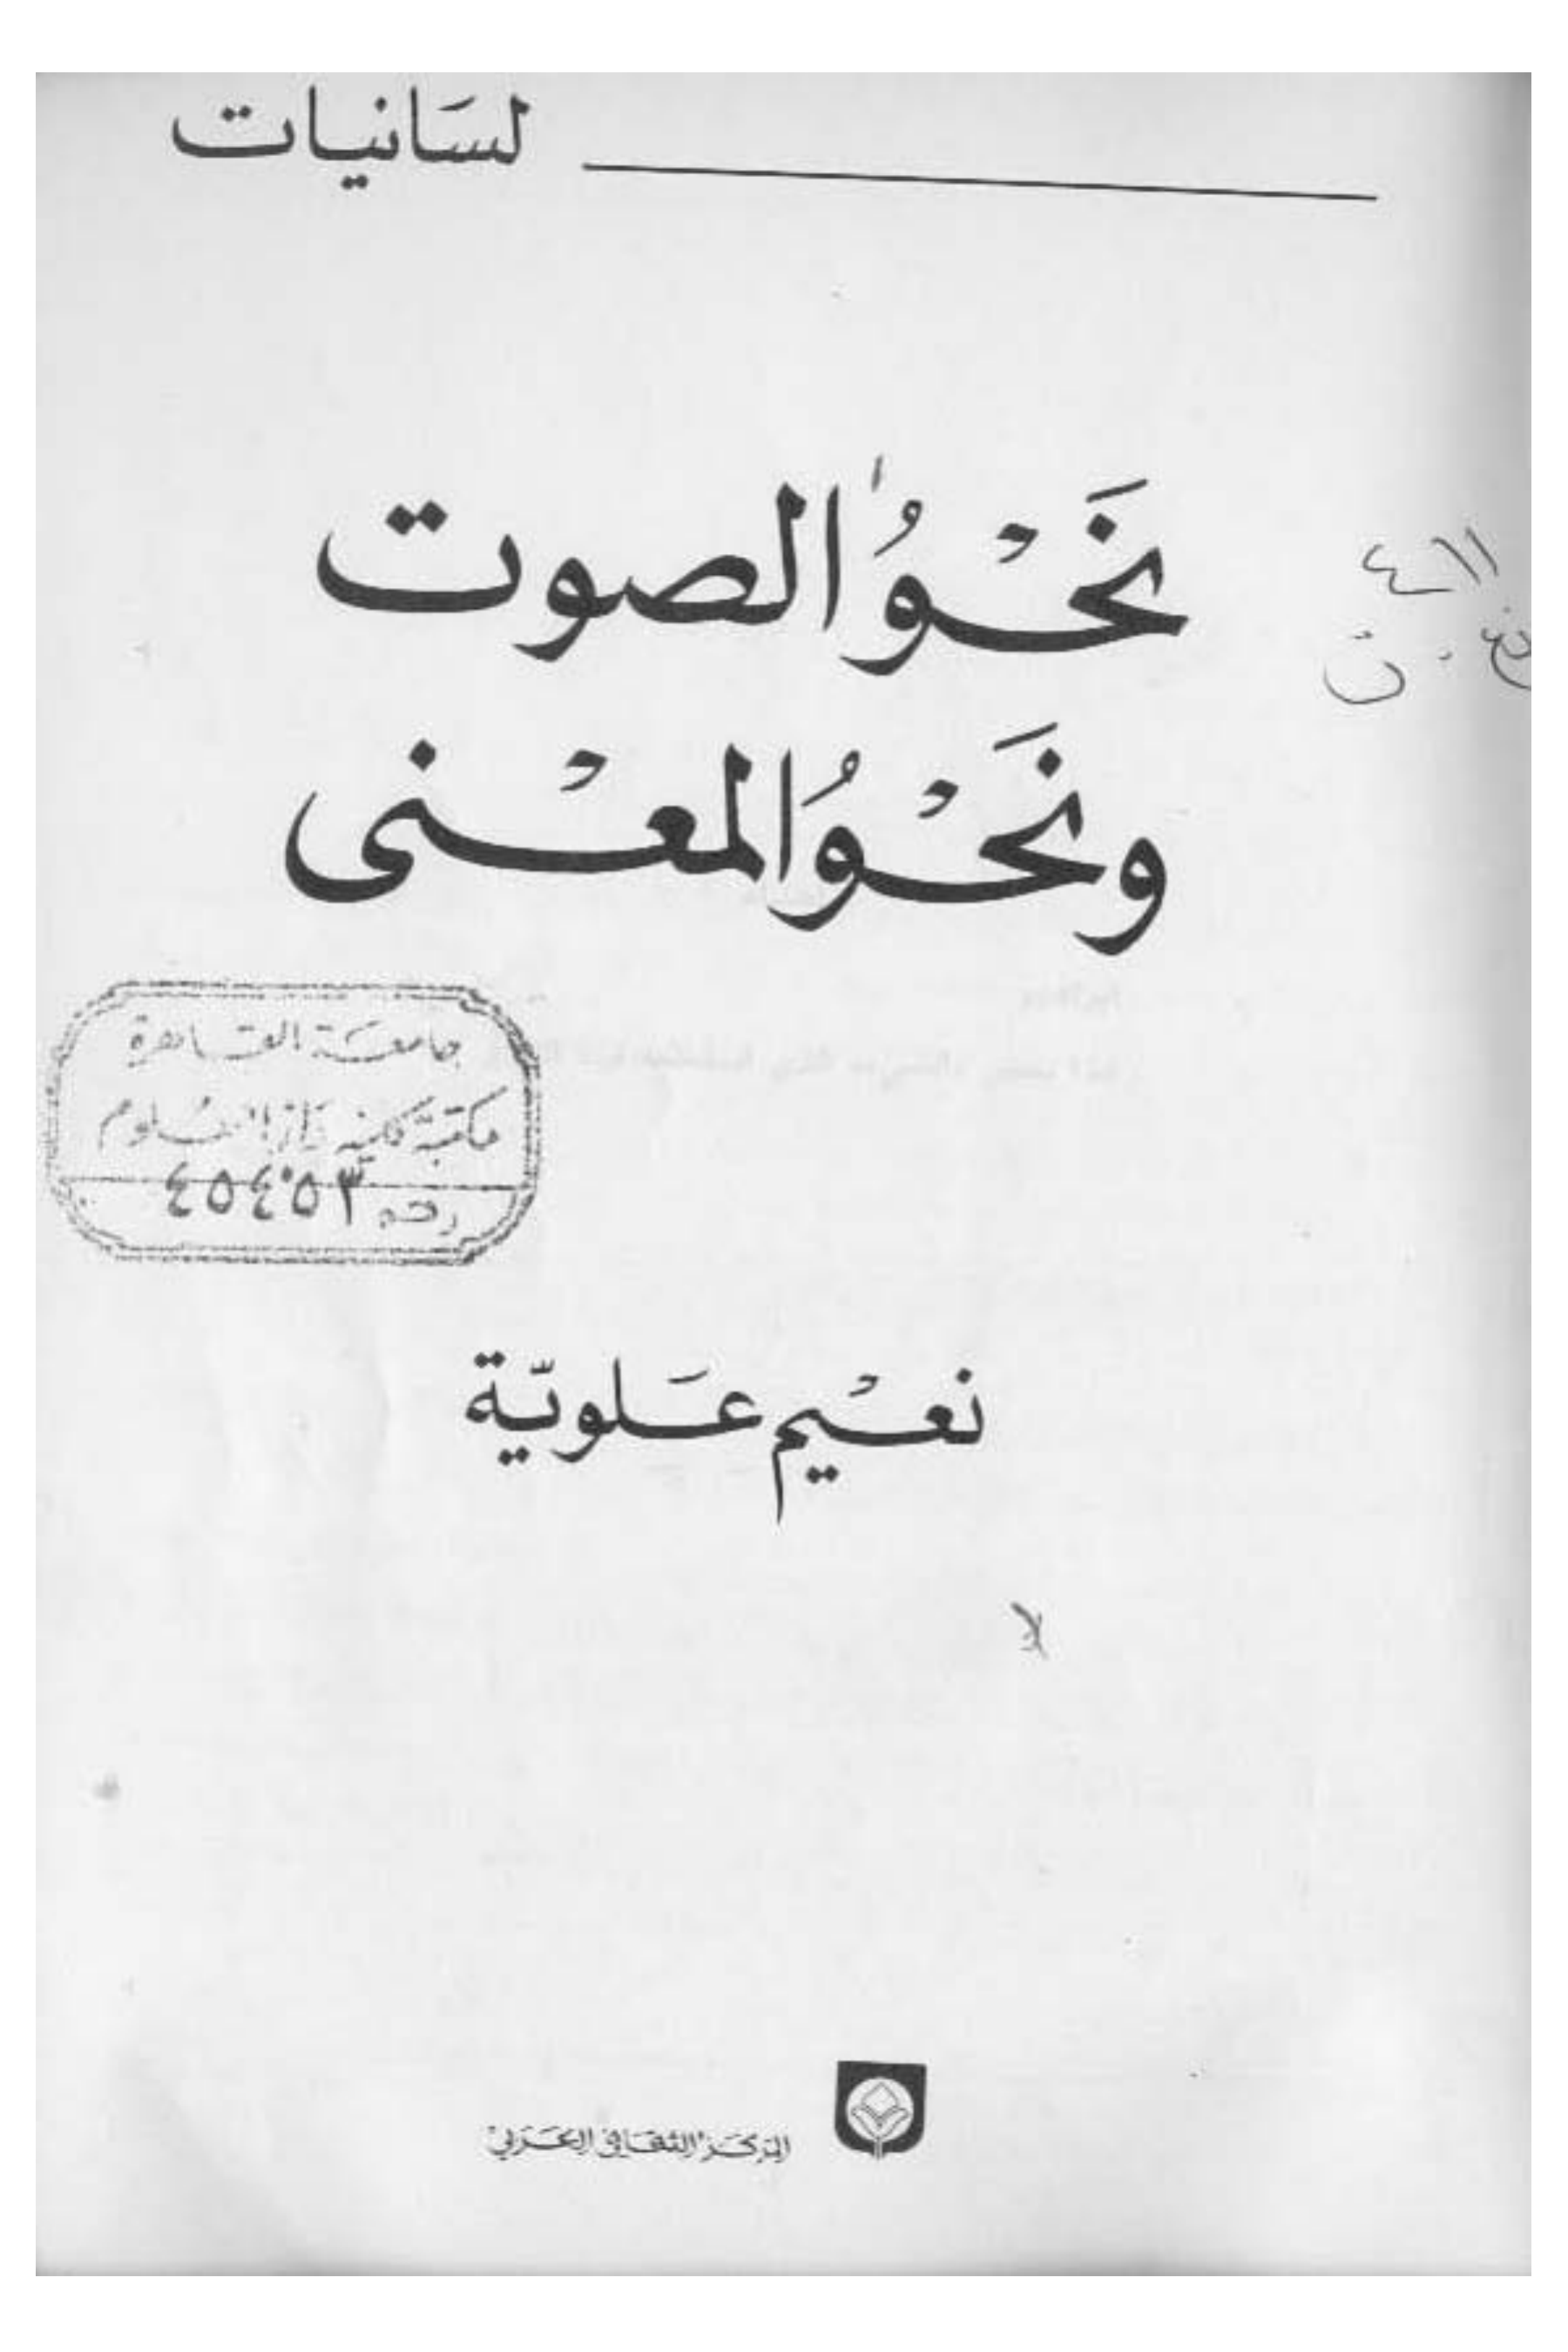 لسَانيات
نَحْوُ الصوت
ونَحْوُ المعْنى
٤١١
ن
جامعَة القاهرة
مكتبة كلية دار العلوم
رقم ٤٥٤٠٥٣
نعْيم عَلويّة
لا
المركز الثقافي العربي